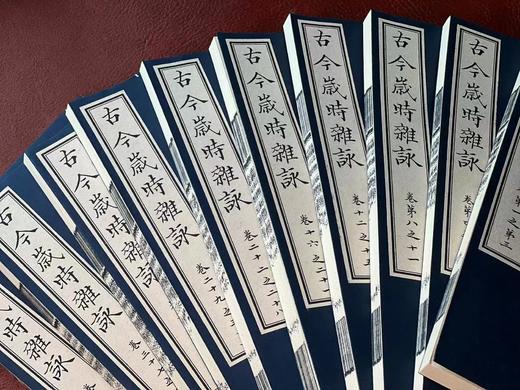 之第三
古今歲時雜詠
卷第
古今歲時雜詠
卷第八之十一
古今歲時雜詠
卷十二之十五
古今歲時雜詠
卷十六之二
古今歲時雜詠
卷二十二之二十八
古今歲時雜詠
卷二十九之三
古今歲時雜詠
古今歲時雜詠
卷三十
時雜詠
卷